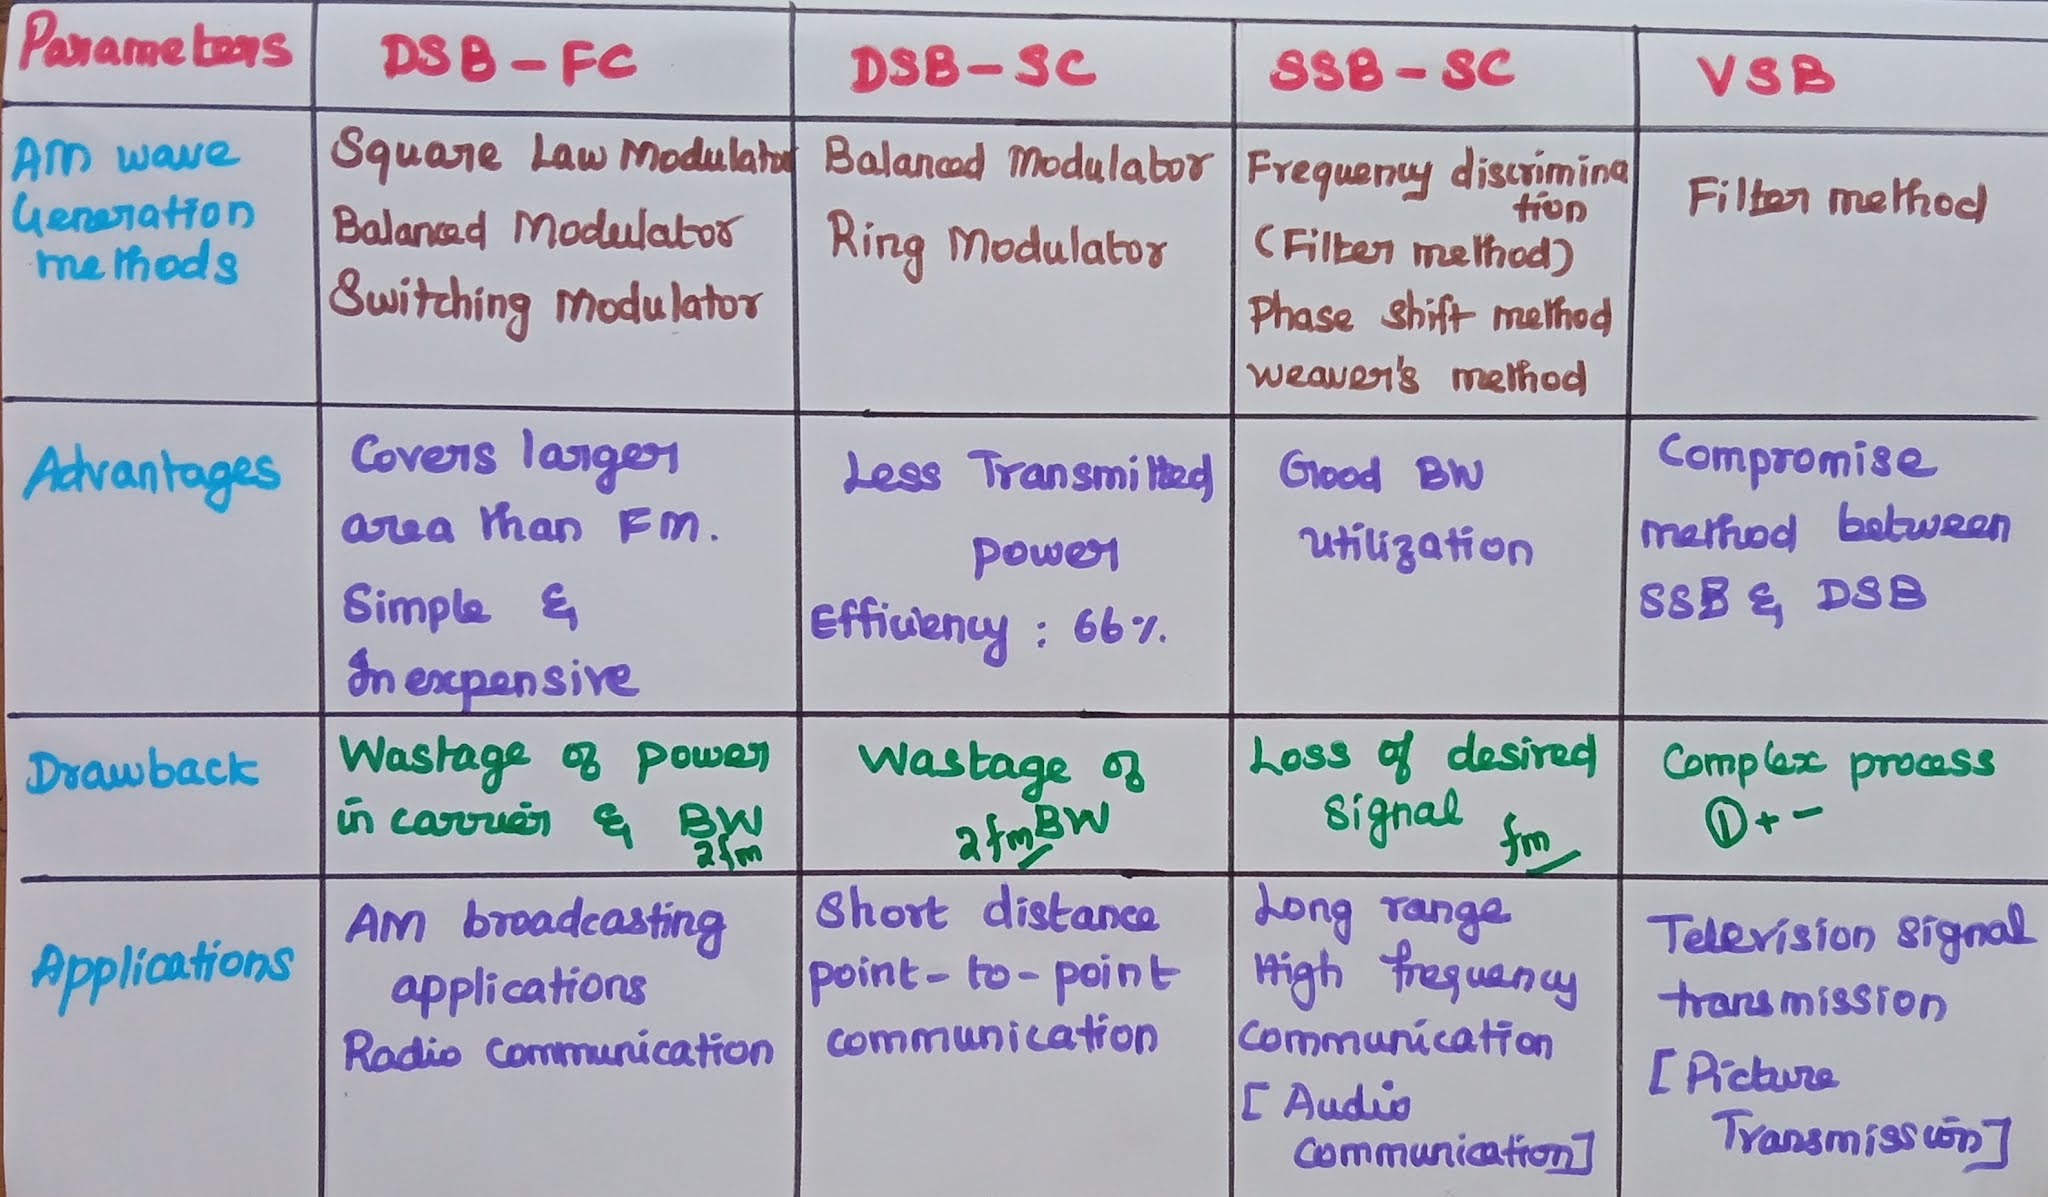 Parameters
DSB - FC
DSB - SC
SSB - SC
VSB
AM wave
Generation
methods
Square Law Modulator
Balanced Modulator
Switching Modulator
Balanced Modulator
Ring Modulator
Frequency discrimina
tion
(Filter method)
Phase shift method
weaver's method
Filter method
Advantages
Covers larger
area than FM.
Simple &
Inexpensive
Less Transmitted
power
Efficiency : 66%.
Good BW
utilization
Compromise
method between
SSB & DSB
Drawback
Wastage of power
in carrier & BW
2fm
Wastage of
2fm BW
Loss of desired
signal fm
Complex process
① + -
Applications
AM broadcasting
applications
Radio communication
Short distance
point-to-point
communication
Long range
High frequency
communication
[ Audio
communication]
Television signal
transmission
[ Picture
Transmission]